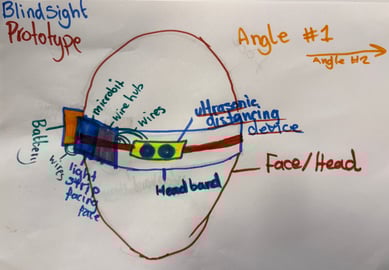 BlindSight
Prototype
Angle #1
Angle #2
microbit
wire hub
wires
ultrasonic
distancing
device
Battery
wires
light
strip
facing
face
Headband
Face/Head